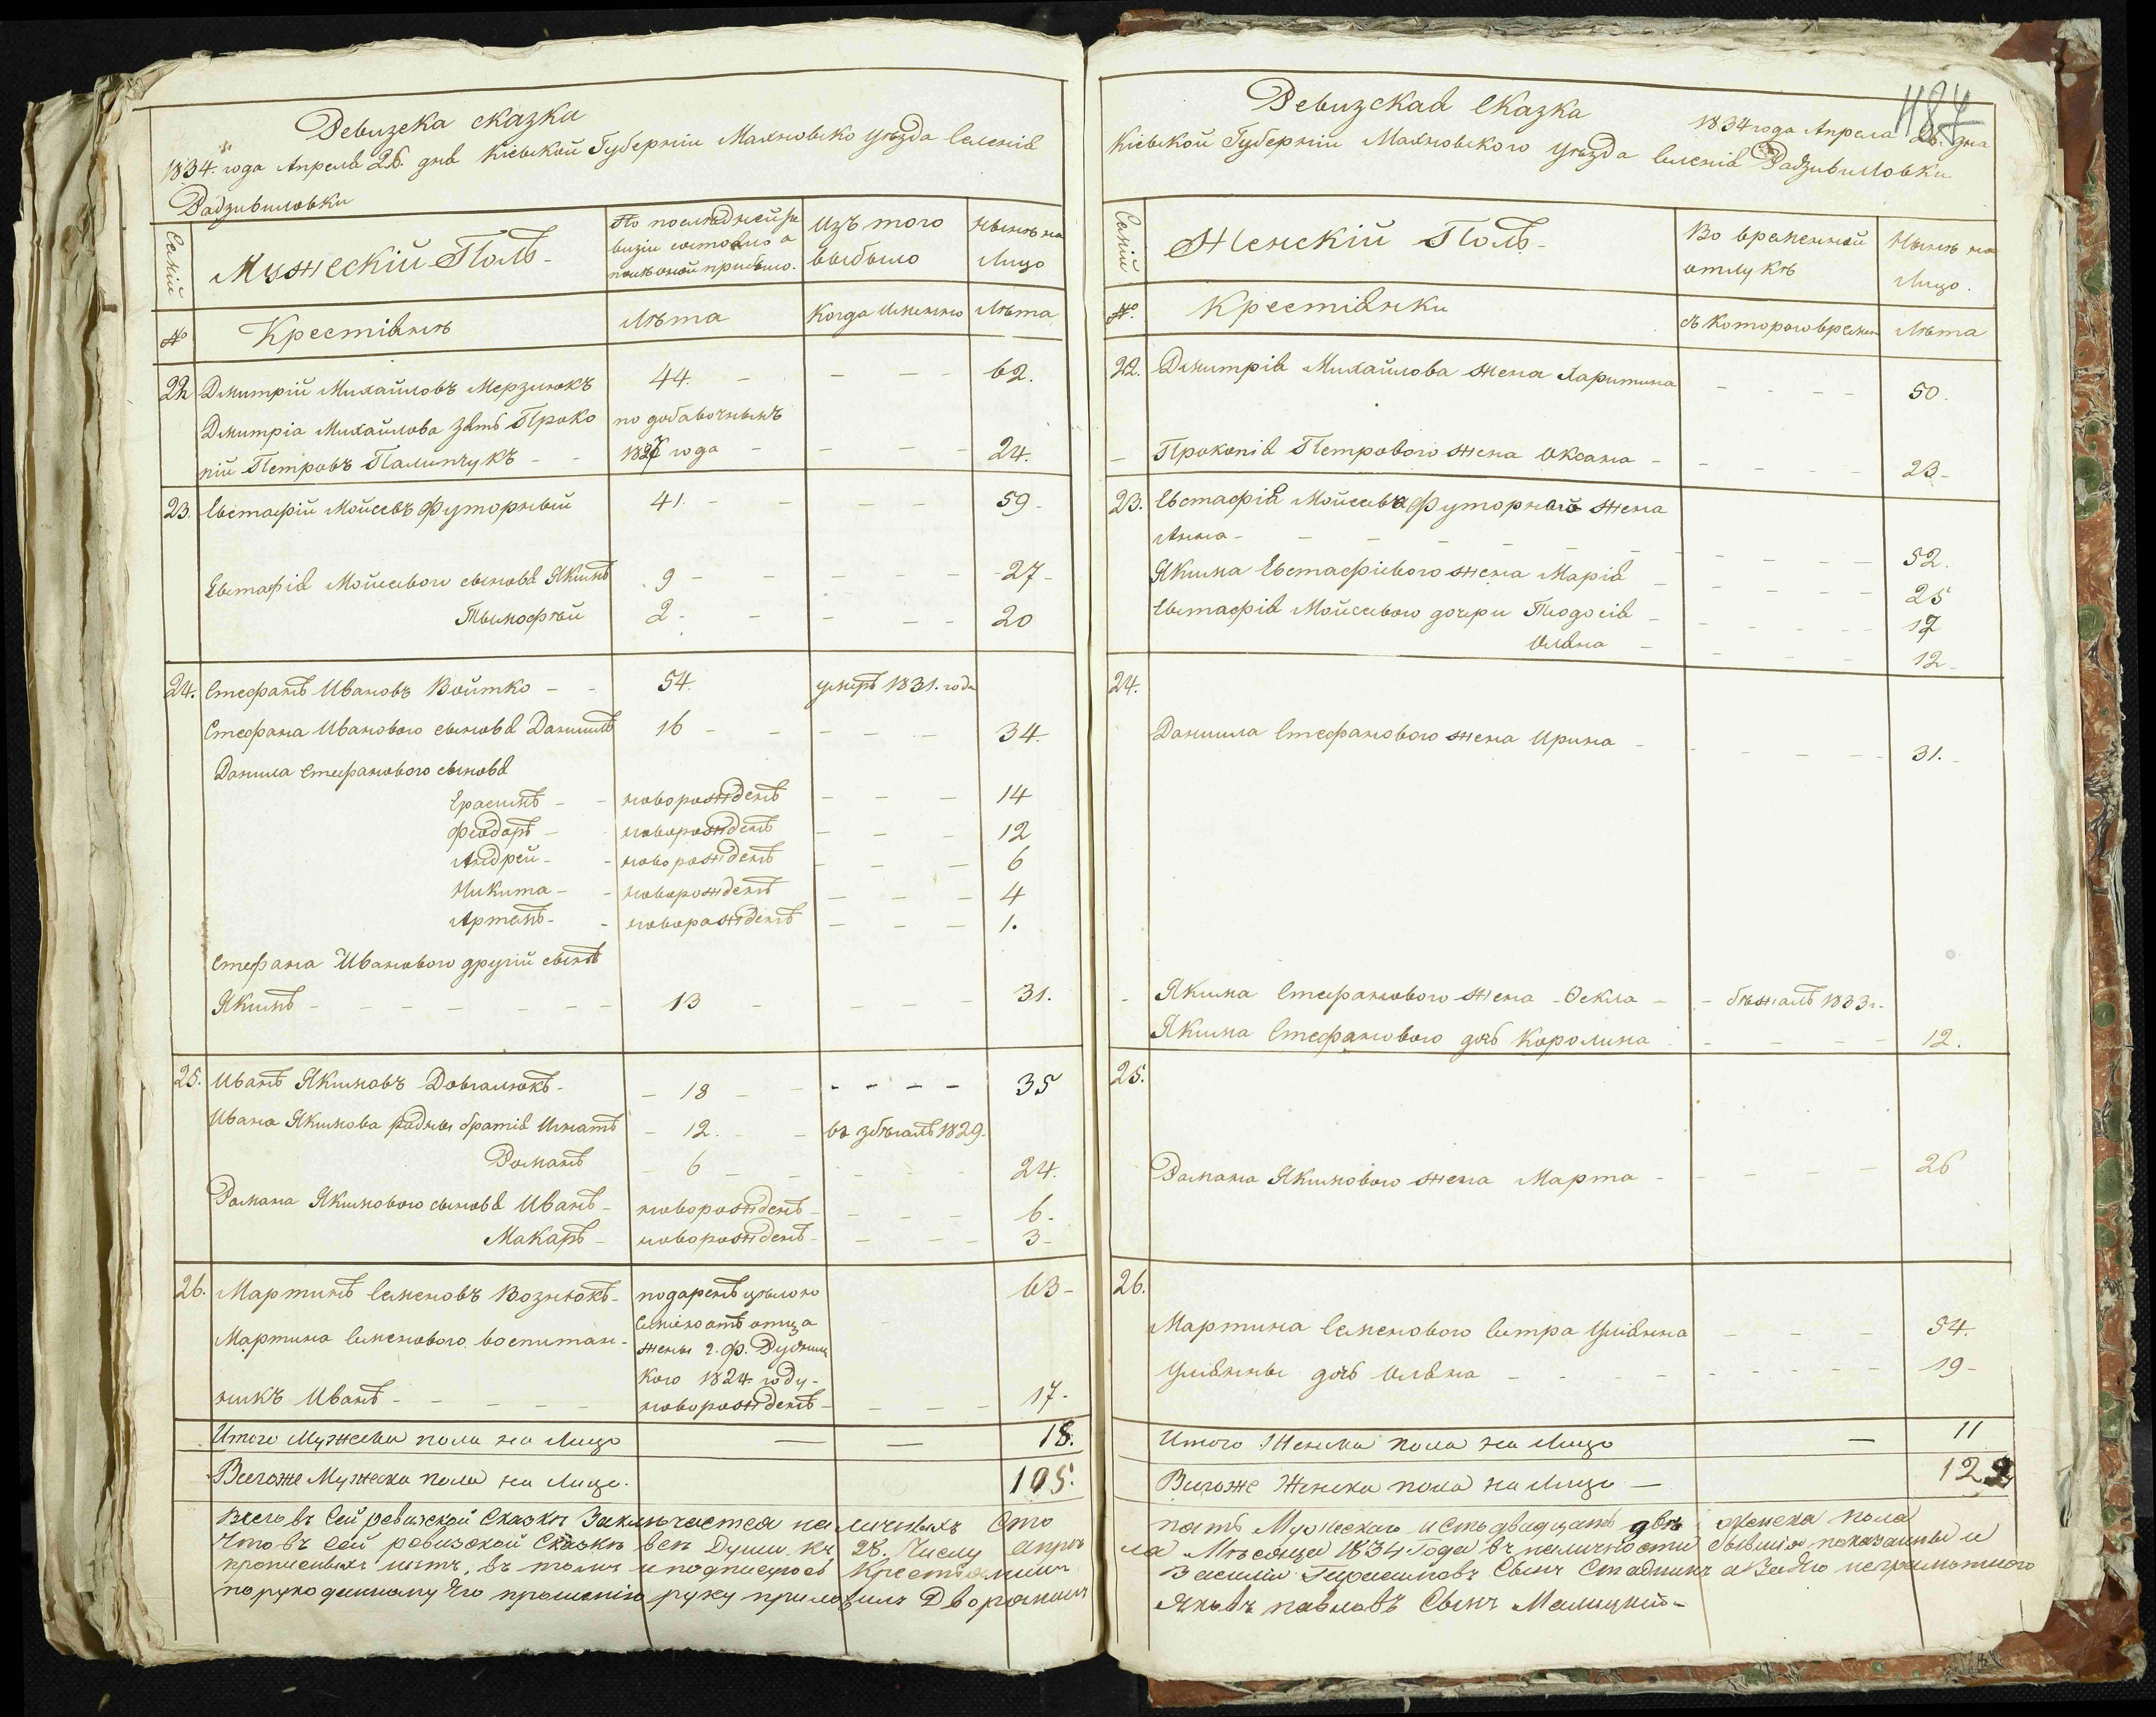 Ревизска сказка
1834. года Апреля 26. дня Кіевской Губерніи Махновско уѣзда Селенія
Радзивиловки
Семій
Мужескій Полъ -
По последнѣй ре
визіи состояло а
послѣ оной прибыло.
Изъ того
выбыло
Нынѣ на
Лицо
№
Крестіянѣ
Лѣта
Когда Именно
Лѣта
22 Дмитрій Михайловъ Мерзлюкъ 44. - - - - 62.
Дмитріа Михайлова зять Проко по добавочнымъ
пій Петровъ Палинчукъ - - 1827 года - - - - 24.
23. Евстафій Мойсеевъ Футорный 41. - - - - 59 -
Евстафія Мойсеевого сыновя Якимъ 9 - - - - - 27 -
Тымофѣй 2 - - - - - 20
24. Стефанъ Ивановъ Войтко - - 54. умеръ 1831. года
Стефана Иванового сыновя Даниилъ 16 - - - - - 34.
Данила Стефанового сыновя
Ерасимъ - - новорожденъ - - - 14
Феодоръ - - новорожденъ - - - 12
Андрей - - новорожденъ - - - 6
Никита - - новорожденъ - - - 4
Артемъ - - новорожденъ - - - 1.
Стефана Иванового другій сынъ
Якимъ - - - - - - 13 - - - - 31.
25. Иванъ Якимовъ Довгалюкъ - - 18 - - - - - 35
Ивана Якимова родны братія Игнатъ - 12. - - въ збѣгахъ 1829.
Романъ - 6 - - - - - 24.
Романа Якимового сыновя Иванъ - новорожденъ - - - - 6.
Макаръ - новорожденъ - - - - 3 -
26. Мартинъ Семеновъ Вознюкъ - подаренъ цѣлою 63 -
Семіею отъ отца
Мартина Семенового воспитан - жены г. Ф.
кого 1824 году -
никъ Иванъ - - - - - новорожденъ - - - - 17 -
Итого Мужеска пола на Лицо — — 18.
Всегоже Мужеска пола на Лице. 105.
Всего въ Сей ревизской Сказкѣ Заключается на личныхъ Сто
Что въ Сей ревизской Сказкѣ всѣ Души къ 28. Числу Апрѣ
прописныхъ нѣтъ, въ томъ и подписуюсь Крестьянинъ
порукоданному Его прошенію руку приложилъ Дворянинъ
487
Ревизская Сказка
1834 года Апреля 26. дня
Кіевской Губерніи Махновского уѣзда Селенія Радзивиловки
Семій
Женскій Полъ -
Во временной
отлукѣ
Нынѣ на
Лицо.
№.
Крестіянки
съ которого времени
Лѣта
22. Дмитрія Михайлова жена Харитина - - - - 50.
- Прокопія Петрового жена Оксана - - - - - 23 -
23. Евстафія Мойсеева Футорнаго жена
Анна - - - - - - - - - - - 52.
Якима Евстафіевого жена Марія - - - - - 25
Евстафія Мойсеевого дочери Теодосія - - - - - 17
Оляна - - - - - 12 -
24.
Даниила Стефанового жена Ирина - - - - - 31. -
- Якима Стефанового жена - Фекла - - бѣжалъ 1833 г.
Якима Стефанового дочь Каролина - - - - 12.
25.
Романа Якимового жена Марта - - - - - 26
26.
Мартина Семенового Сестра Уліянна - - - 54.
Уліянны дочь Оляна - - - - - - - - 19 -
Итого Женска пола на Лицо — 11
Всегоже Женска пола на Лицо — 122
пять Мужескаго и сто двадцать двѣ женска пола
ля Мѣсяца 1834 Года въ наличности бывшія показанны и
Василій Герасимовъ Сынъ Стадникъ а Заего неграмотного
Яковъ павловъ Сынъ Малицкій -